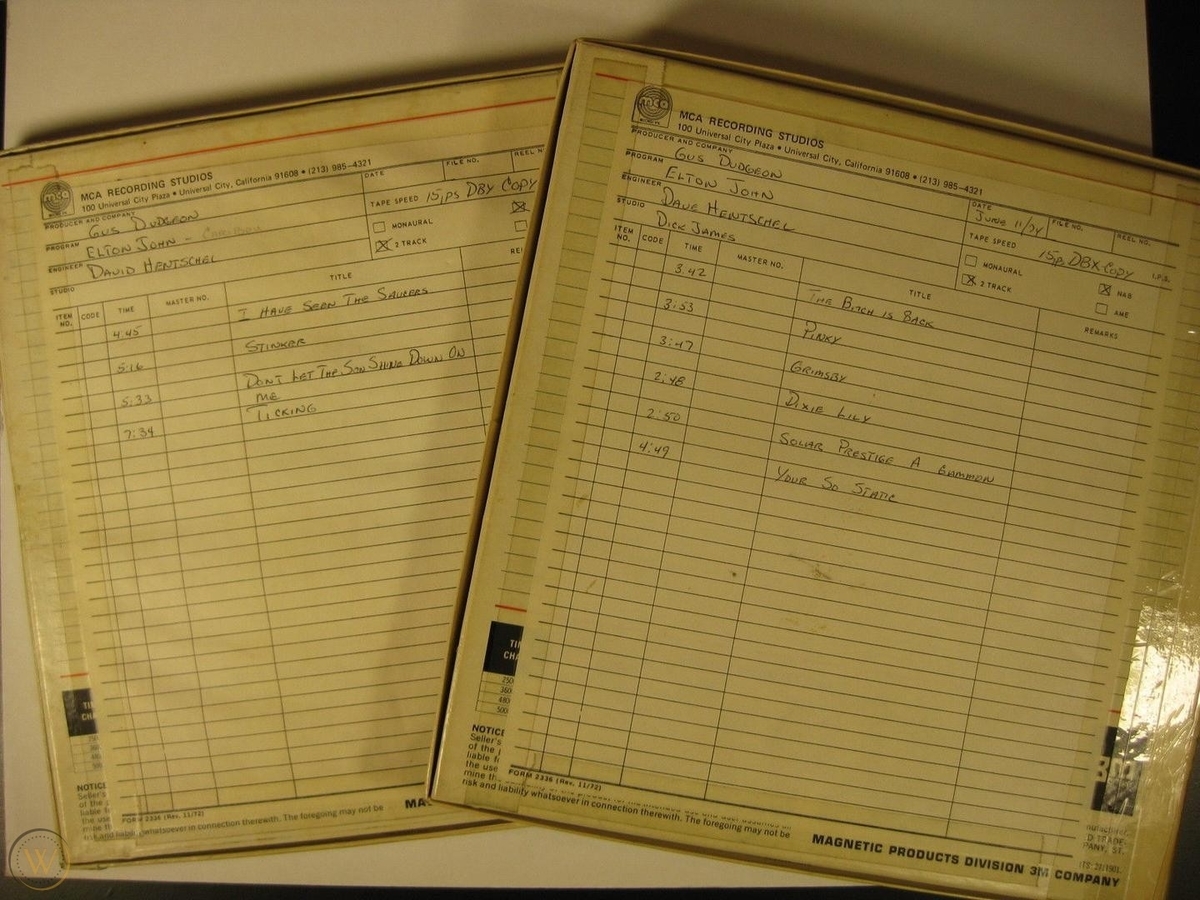 mca
MCA RECORDING STUDIOS
100 Universal City Plaza • Universal City, California 91608 • (213) 985-4321
PRODUCER AND COMPANY
GUS DUDGEON
PROGRAM
ELTON JOHN - CARIBOU
ENGINEER
DAVID HENTSCHEL
STUDIO
DATE
FILE NO.
REEL N
TAPE SPEED 15ips DBX COPY
MONAURAL
2 TRACK
ITEM NO. CODE TIME MASTER NO. TITLE RE
4:45 I HAVE SEEN THE SAUCERS
5:16 STINKER
5:33 DON'T LET THE SON SHINE DOWN ON
ME
7:34 TICKING
NOTICE
Seller's
of the
liable f
the us
mine t
risk and liability whatsoever in connection therewith. The foregoing may not be
FORM 2336 (Rev. 11/72)
MA
mca
MCA RECORDING STUDIOS
100 Universal City Plaza • Universal City, California 91608 • (213) 985-4321
PRODUCER AND COMPANY
GUS DUDGEON
PROGRAM
ELTON JOHN
ENGINEER
DAVE HENTSCHEL
STUDIO
DICK JAMES
DATE
JUNE 11/74
FILE NO.
REEL NO.
TAPE SPEED
15ips DBX COPY I.P.S.
MONAURAL
2 TRACK
NAB
AME
ITEM NO. CODE TIME MASTER NO. TITLE REMARKS
3:42 THE BITCH IS BACK
3:53 PINKY
3:47 GRIMSBY
2:48 DIXIE LILY
2:50 SOLAR PRESTIGE A GAMMON
4:49 YOUR SO STATIC
TI
CHA
250
360
480
500
NOTICE
Seller's
of the
liable for
the use
mine the
risk and liability whatsoever in connection therewith. The foregoing may not be
FORM 2336 (Rev. 11/72)
MAGNETIC PRODUCTS DIVISION 3M COMPANY
W